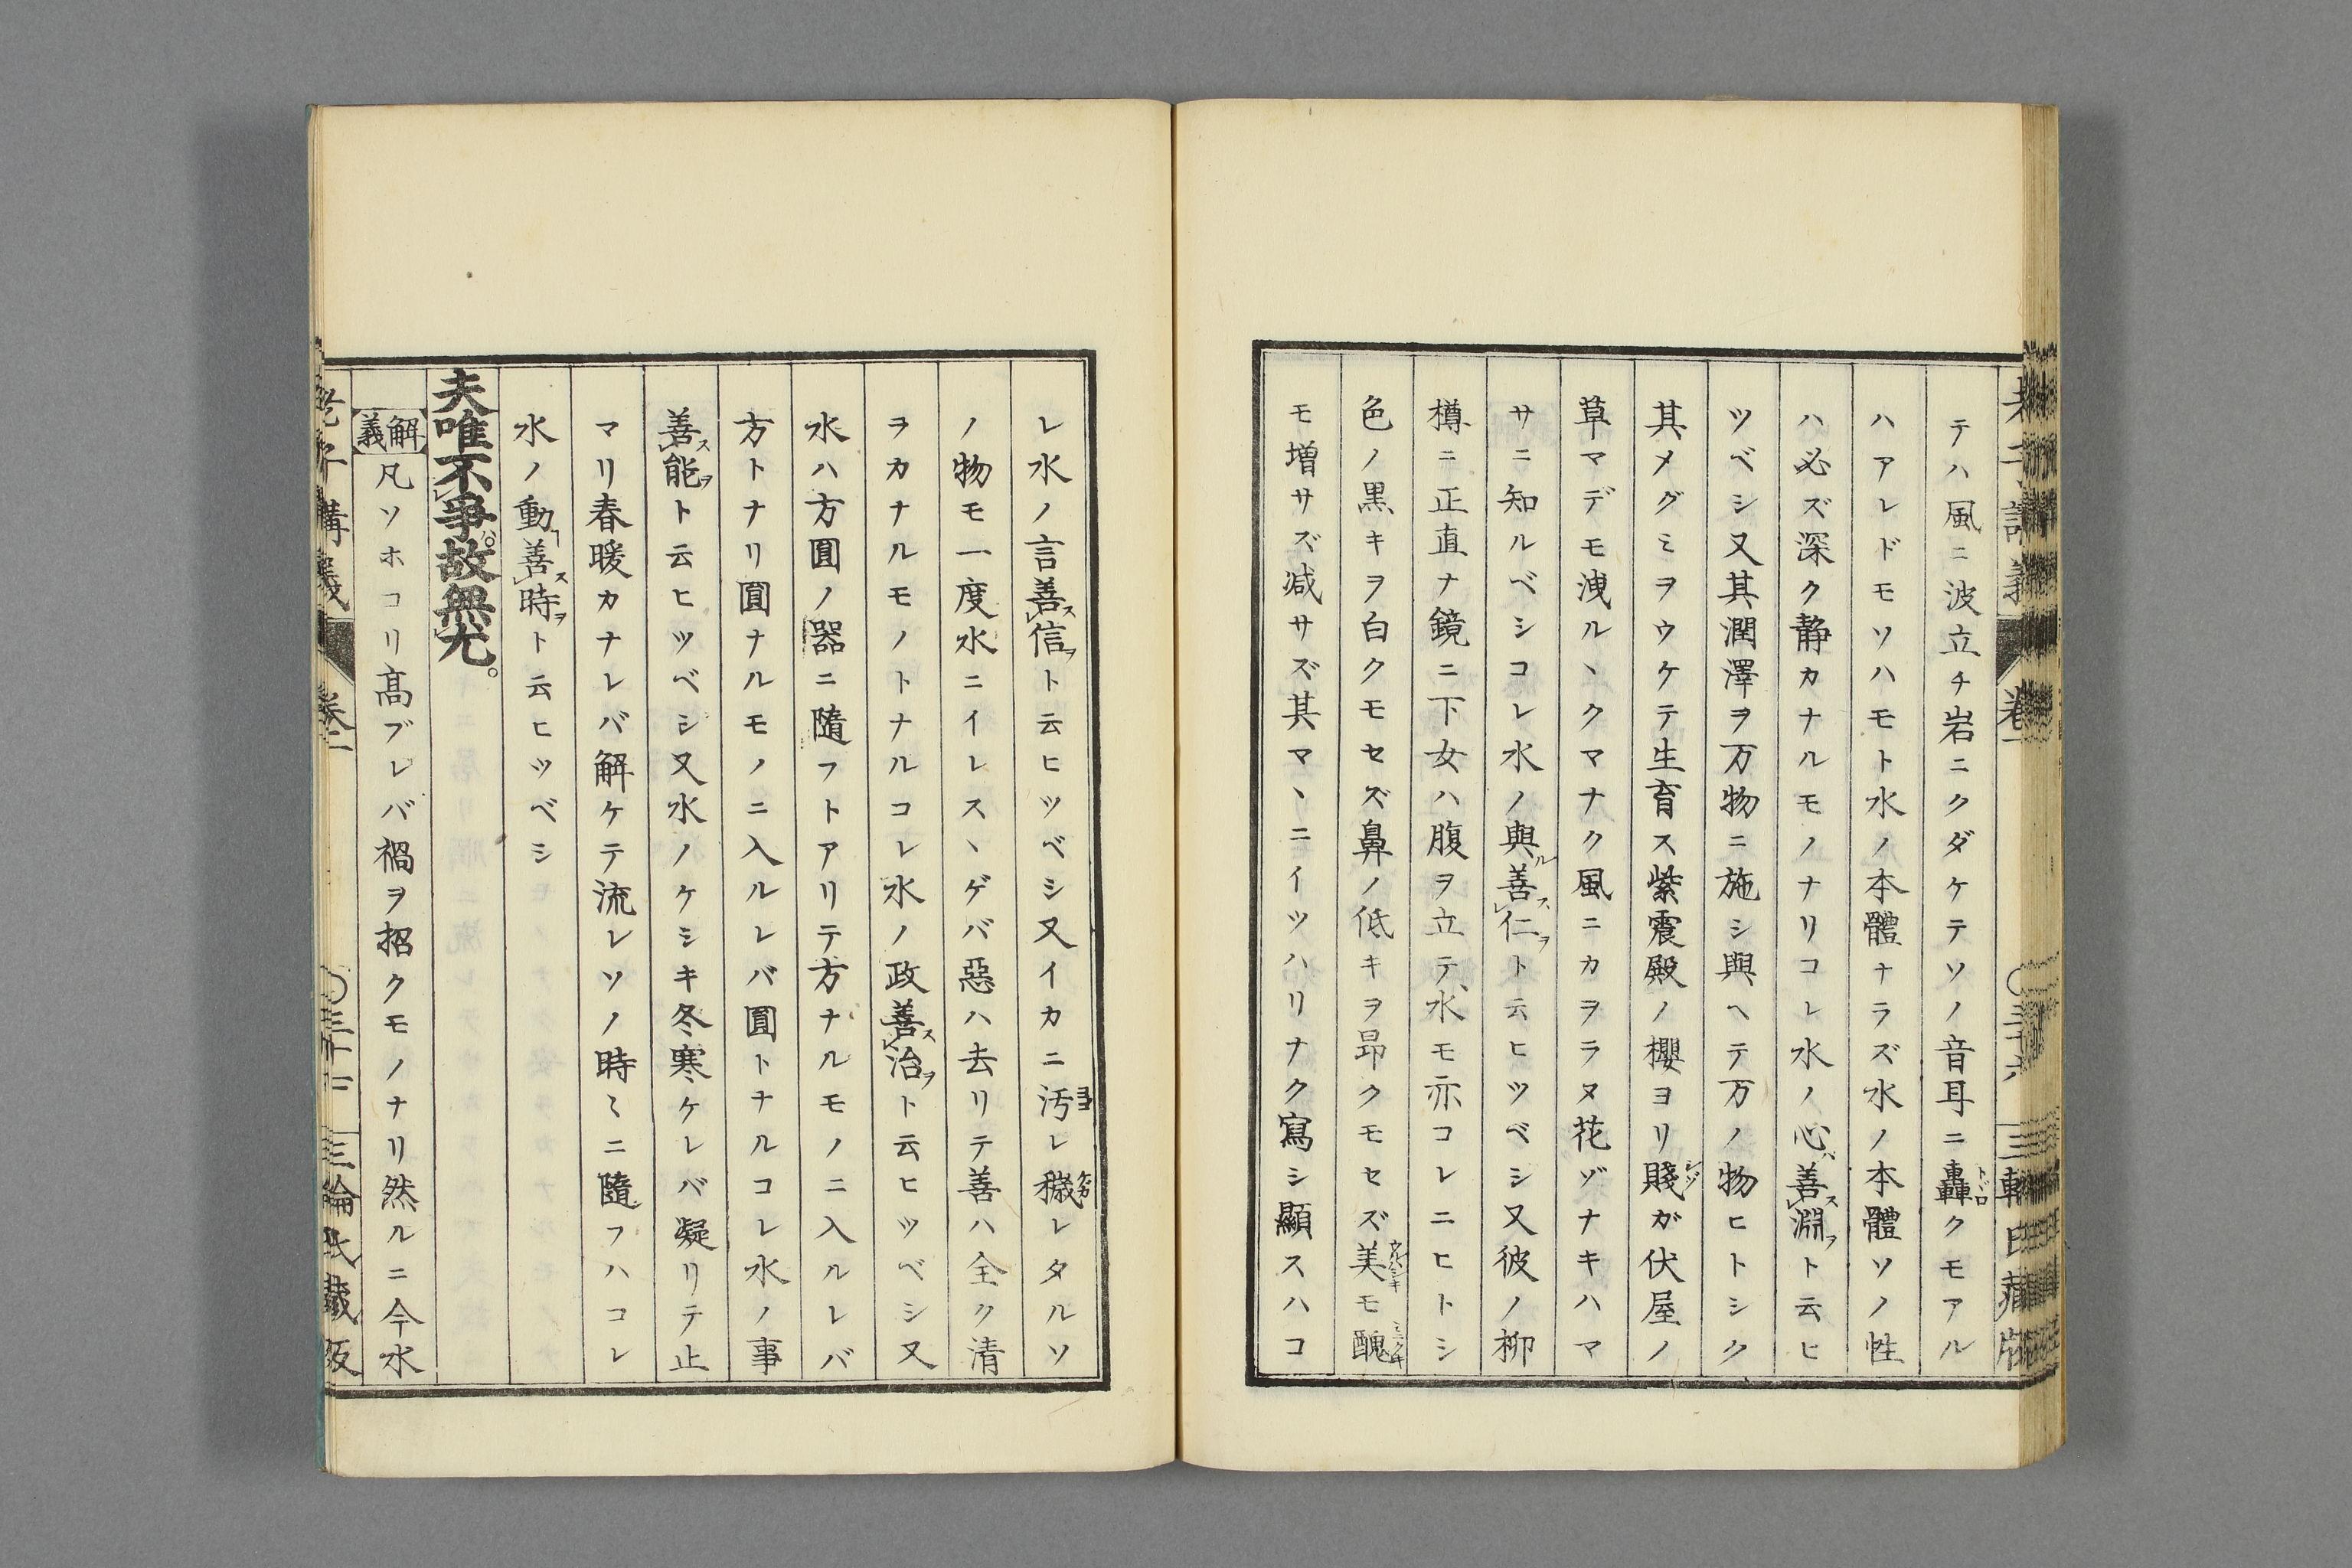 テハ風ニ波立チ岩ニクダケテソノ音耳ニ轟クモアル
ハアレドモソハモト水ノ本體ナラズ水ノ本體ソノ性
ハ必ズ深ク静カナルモノナリコレ水ノ心善淵ト云ヒ
ツベシ又其潤澤ヲ万物ニ施シ與ヘテ万ノ物ヒトシク
其メグミヲウケテ生育ス紫震殿ノ櫻ヨリ賤ガ伏屋ノ
草マデモ洩ルヽクマナク風ニカヲラヌ花ゾナキハマ
サニ知ルベシコレ水ノ與善仁ト云ヒツベシ又彼ノ柳
樽ニ正直ナ鏡ニ下女ハ腹ヲ立テ水モ亦コレニヒトシ
色ノ黒キヲ白クモセズ鼻ノ低キヲ昂クモセズ美モ醜
モ増サズ減サズ其マヽニイツハリナク寫シ顯スハコ
レ水ノ言善信ト云ヒツベシ又イカニ汚レ穢レタルソ
ノ物モ一度水ニイレスヽゲバ惡ハ去リテ善ハ全ク清
ヲカナルモノトナルコレ水ノ政善治ト云ヒツベシ又
水ハ方圓ノ器ニ隨フトアリテ方ナルモノニ入ルレバ
方トナリ圓ナルモノニ入ルレバ圓トナルコレ水ノ事
善能ト云ヒツベシ又水ノケシキ冬寒ケレバ凝リテ止
マリ春暖カナレバ解ケテ流レソノ時〻ニ隨フハコレ
水ノ動善時ト云ヒツベシ
夫唯不爭故無尤。
解義 凡ソホコリ高ブレバ禍ヲ招クモノナリ然ルニ今水
老子講義 卷一 三輪氏藏版